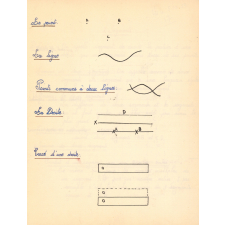 Le point:
A B
C
La ligne:
Points communs à deux lignes:
La Droite: D
X
A B
Tracé d'une droite: